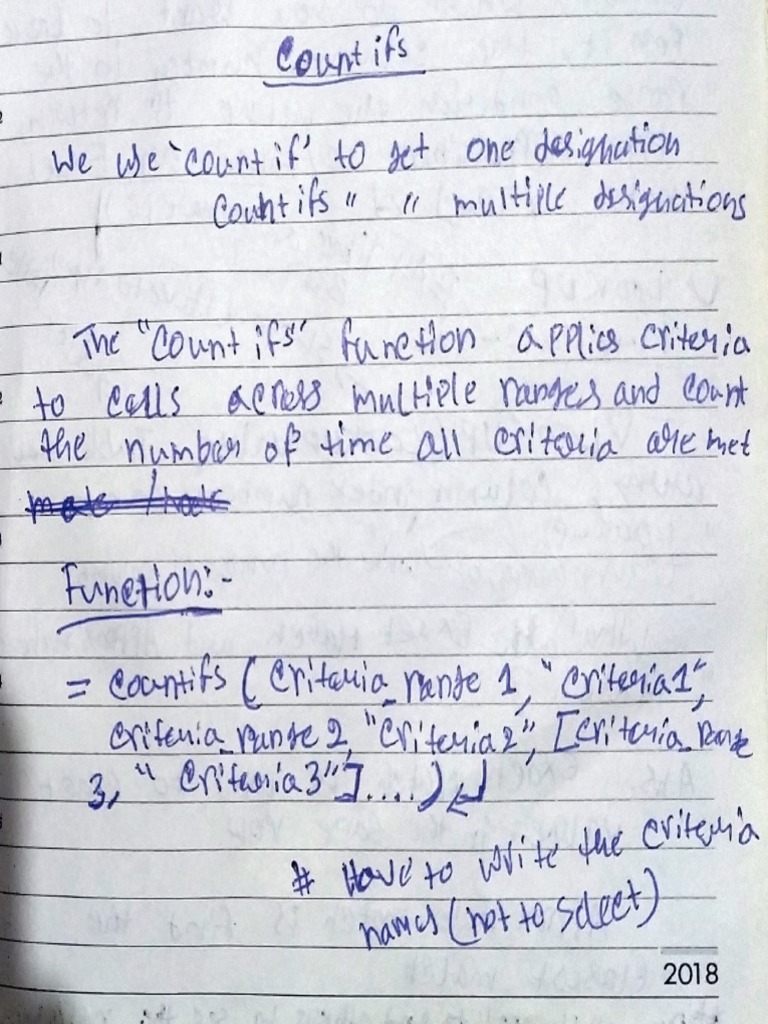 Countifs
We use 'countif' to get one designation
Countifs " " multiple designations
The "Countifs" function applies criteria
to cells across multiple ranges and count
the number of time all criteria are met
Function:-
= countifs (criteria_range 1, "criteria1",
criteria_range 2, "criteria2", [criteria_range
3, "criteria3"]....)↵
# Have to write the criteria
names (not to select)
2018